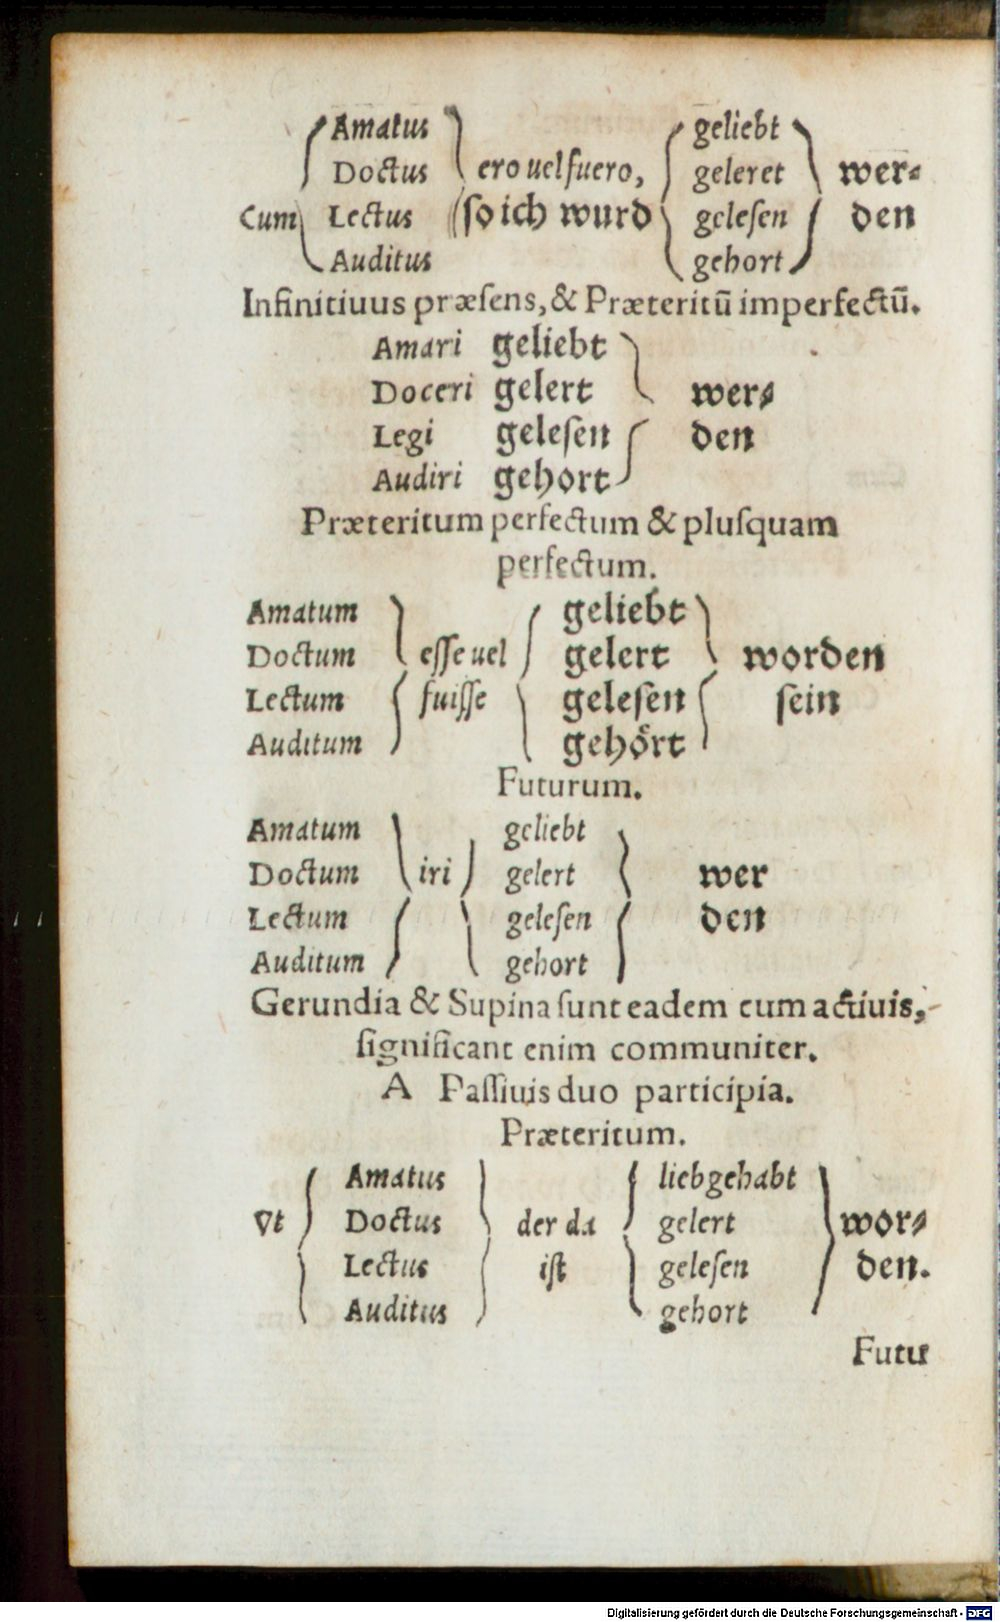 Amatus geliebt
Doctus ero uel fuero, geleret wer-
Cum Lectus so ich wurd gelesen den
Auditus gehort
Infinitiuus præsens, & Præteritū imperfectū.
Amari geliebt
Doceri gelert wer-
Legi gelesen den
Audiri gehort
Præteritum perfectum & plusquam
perfectum.
Amatum geliebt
Doctum esse uel gelert worden
Lectum fuisse gelesen sein
Auditum gehört
Futurum.
Amatum geliebt
Doctum iri gelert wer
Lectum gelesen den
Auditum gehort
Gerundia & Supina sunt eadem cum actiuis,
significant enim communiter.
A Passiuis duo participia.
Præteritum.
Amatus liebgehabt
Vt Doctus der da gelert wor-
Lectus ist gelesen den.
Auditus gehort
Futu
Digitalisierung gefördert durch die Deutsche Forschungsgemeinschaft - DFG